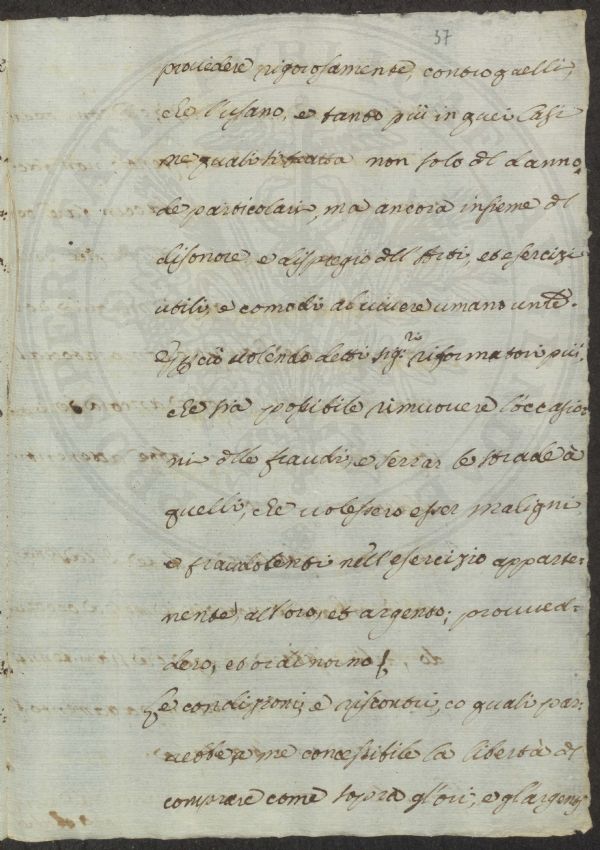 37
provedere rigorosamente, contro quelli,
che l'usano, e tanto più in quei casi
ne quali si tratta non solo di danno
de particolari, ma ancora insieme di
disonore, e dispregio dll' Arti, et esercizi
utili, e comodi al vivere umano
E p ciò volendo detti Sig.ri riformatori più
che sia possibile rimuovere l'occasio-
ni dlle fraudi, e serrar le strade à
quelli, che volessero esser maligni
e fraudolenti nell'esercizio apparte-
nente, all'oro, et argento; provved-
dero, et ordinorno
Le condizioni, e riscontri, co quali par-
rebbe a me concessibile la libertà di
comprare come sopra gl'ori, e gl'argenti